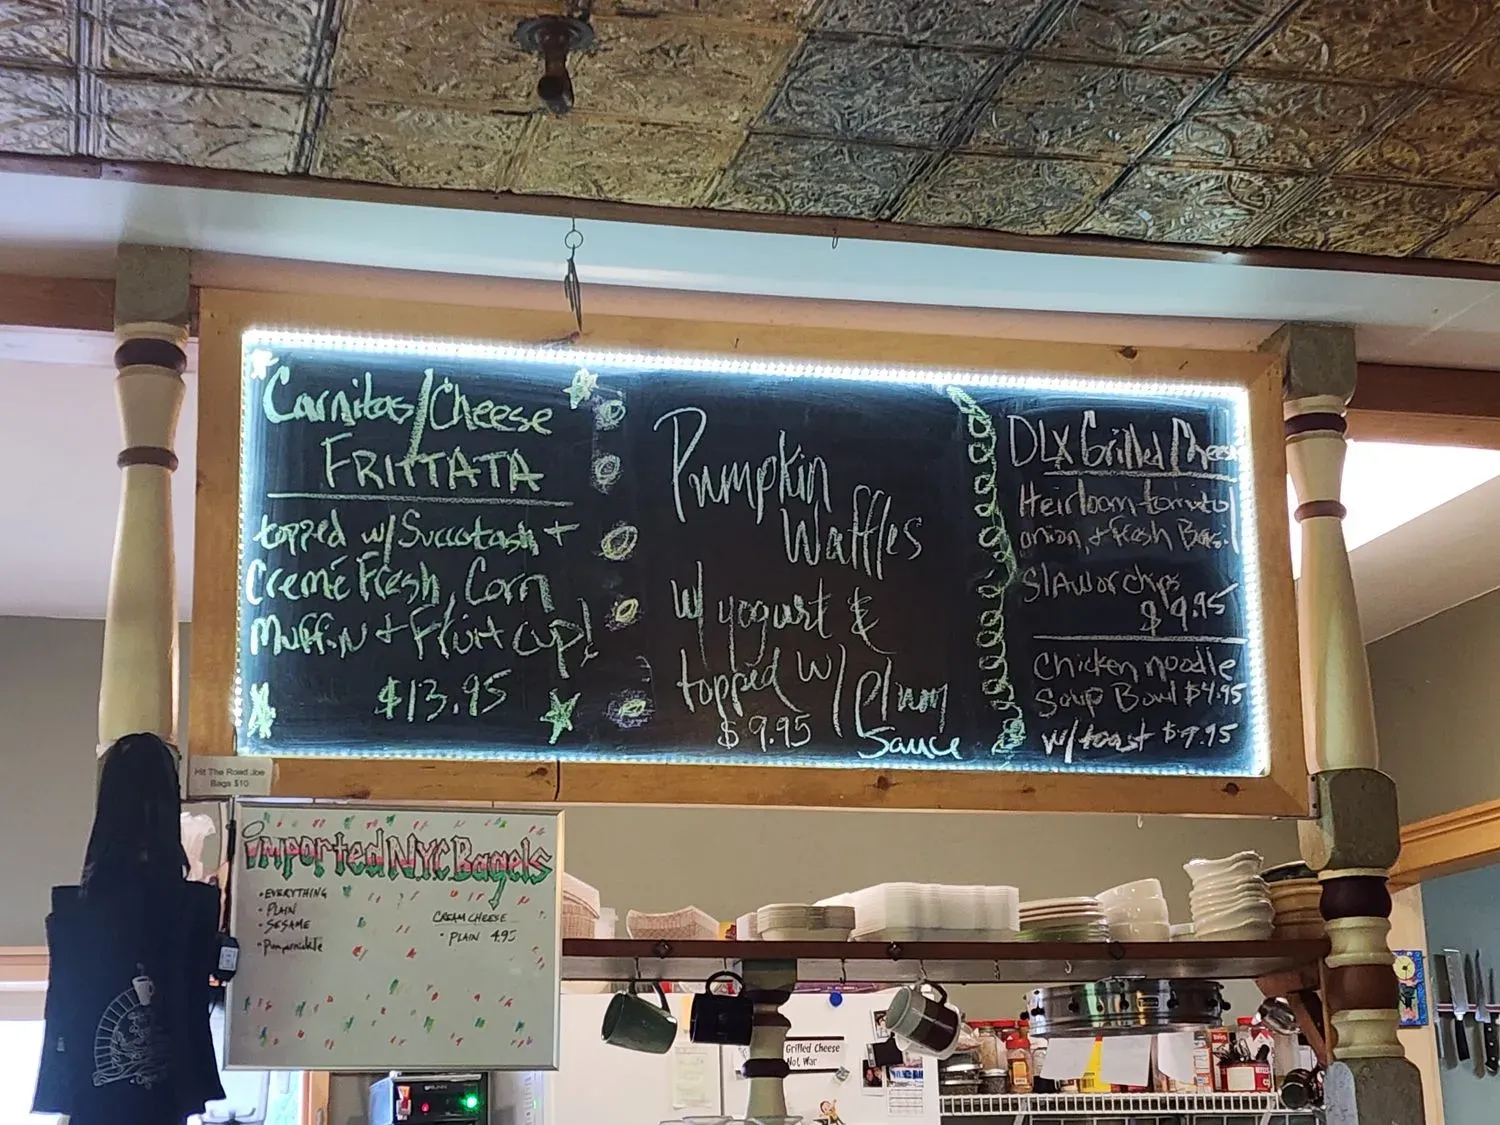 Carnitas/Cheese
FRITTATA
topped w/Succotash +
Creme Fresh, Corn
Muffin + Fruit cup!
$13.95
Pumpkin
Waffles
w/ yogurt &
topped w/ Plum
Sauce
$9.95
DLX Grilled Chees
Heirloom tomato
onion, + fresh Basil
Slaw or chips
$9.95
Chicken noodle
Soup Bowl $4.95
w/toast
Hit The Road Joe
Bags $10
imported NYC Bagels
• EVERYTHING
• PLAIN
• SESAME
• Pumpernickle
CREAM CHEESE
• PLAIN 4.95
Grilled Cheese
Not War